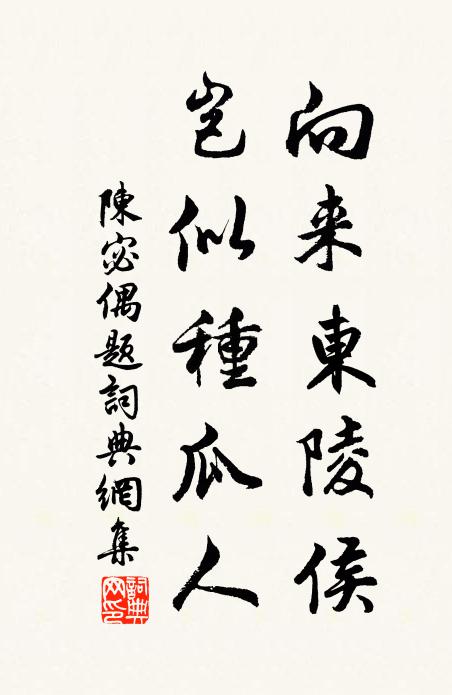 向来東陵侯
豈似種瓜人
陳宓偶題詞典網集
詞典網印